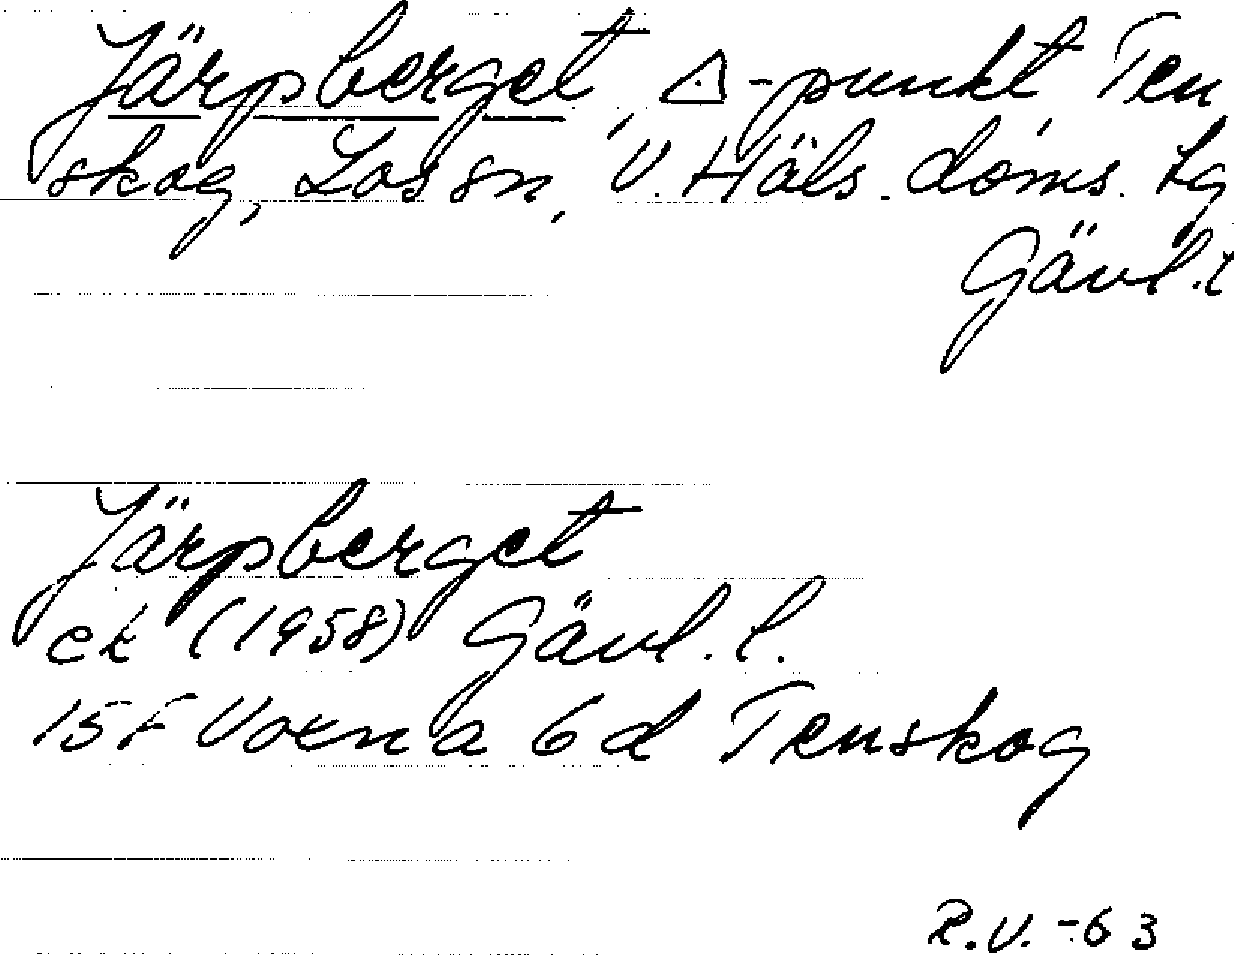 Järpberget, △-punkt, Ten
skog, Los sn, V. Häls. doms. tg
Gävl. l
Järpberget
ek (1958) Gävl. l.
15F Voxna 6d Tenskog
R.V. -63